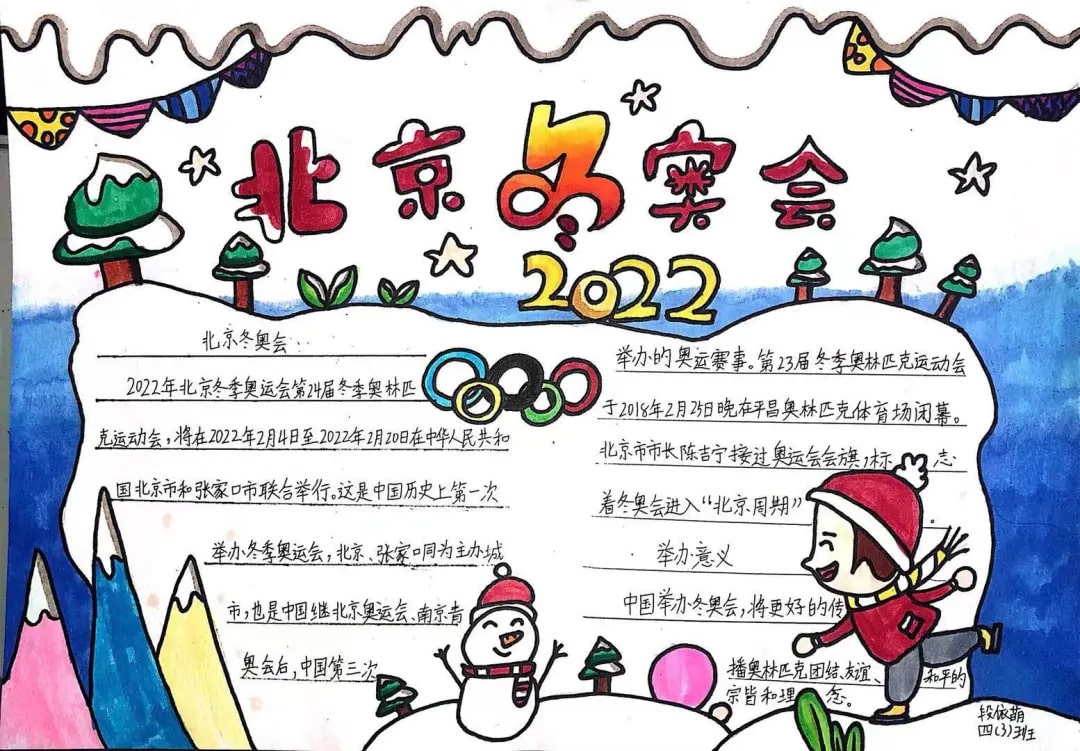 北京冬奥会
2022
北京冬奥会:
2022年北京冬季奥运会第24届冬季奥林匹
克运动会，将在2022年2月4日至2022年2月20日在中华人民共和
国北京市和张家口市联合举行。这是中国历史上第一次
举办冬季奥运会，北京、张家口同为主办城
市，也是中国继北京奥运会、南京青
奥会后，中国第三次
举办的奥运赛事。第23届冬季奥林匹克运动会
于2018年2月25日晚在平昌奥林匹克体育场闭幕。
北京市市长陈吉宁接过奥运会会旗，标志
着冬奥会进入“北京周期”
举办意义
中国举办冬奥会，将更好的传
播奥林匹克团结、友谊、和平的
宗皆和理念。
段依萌
四(3)班